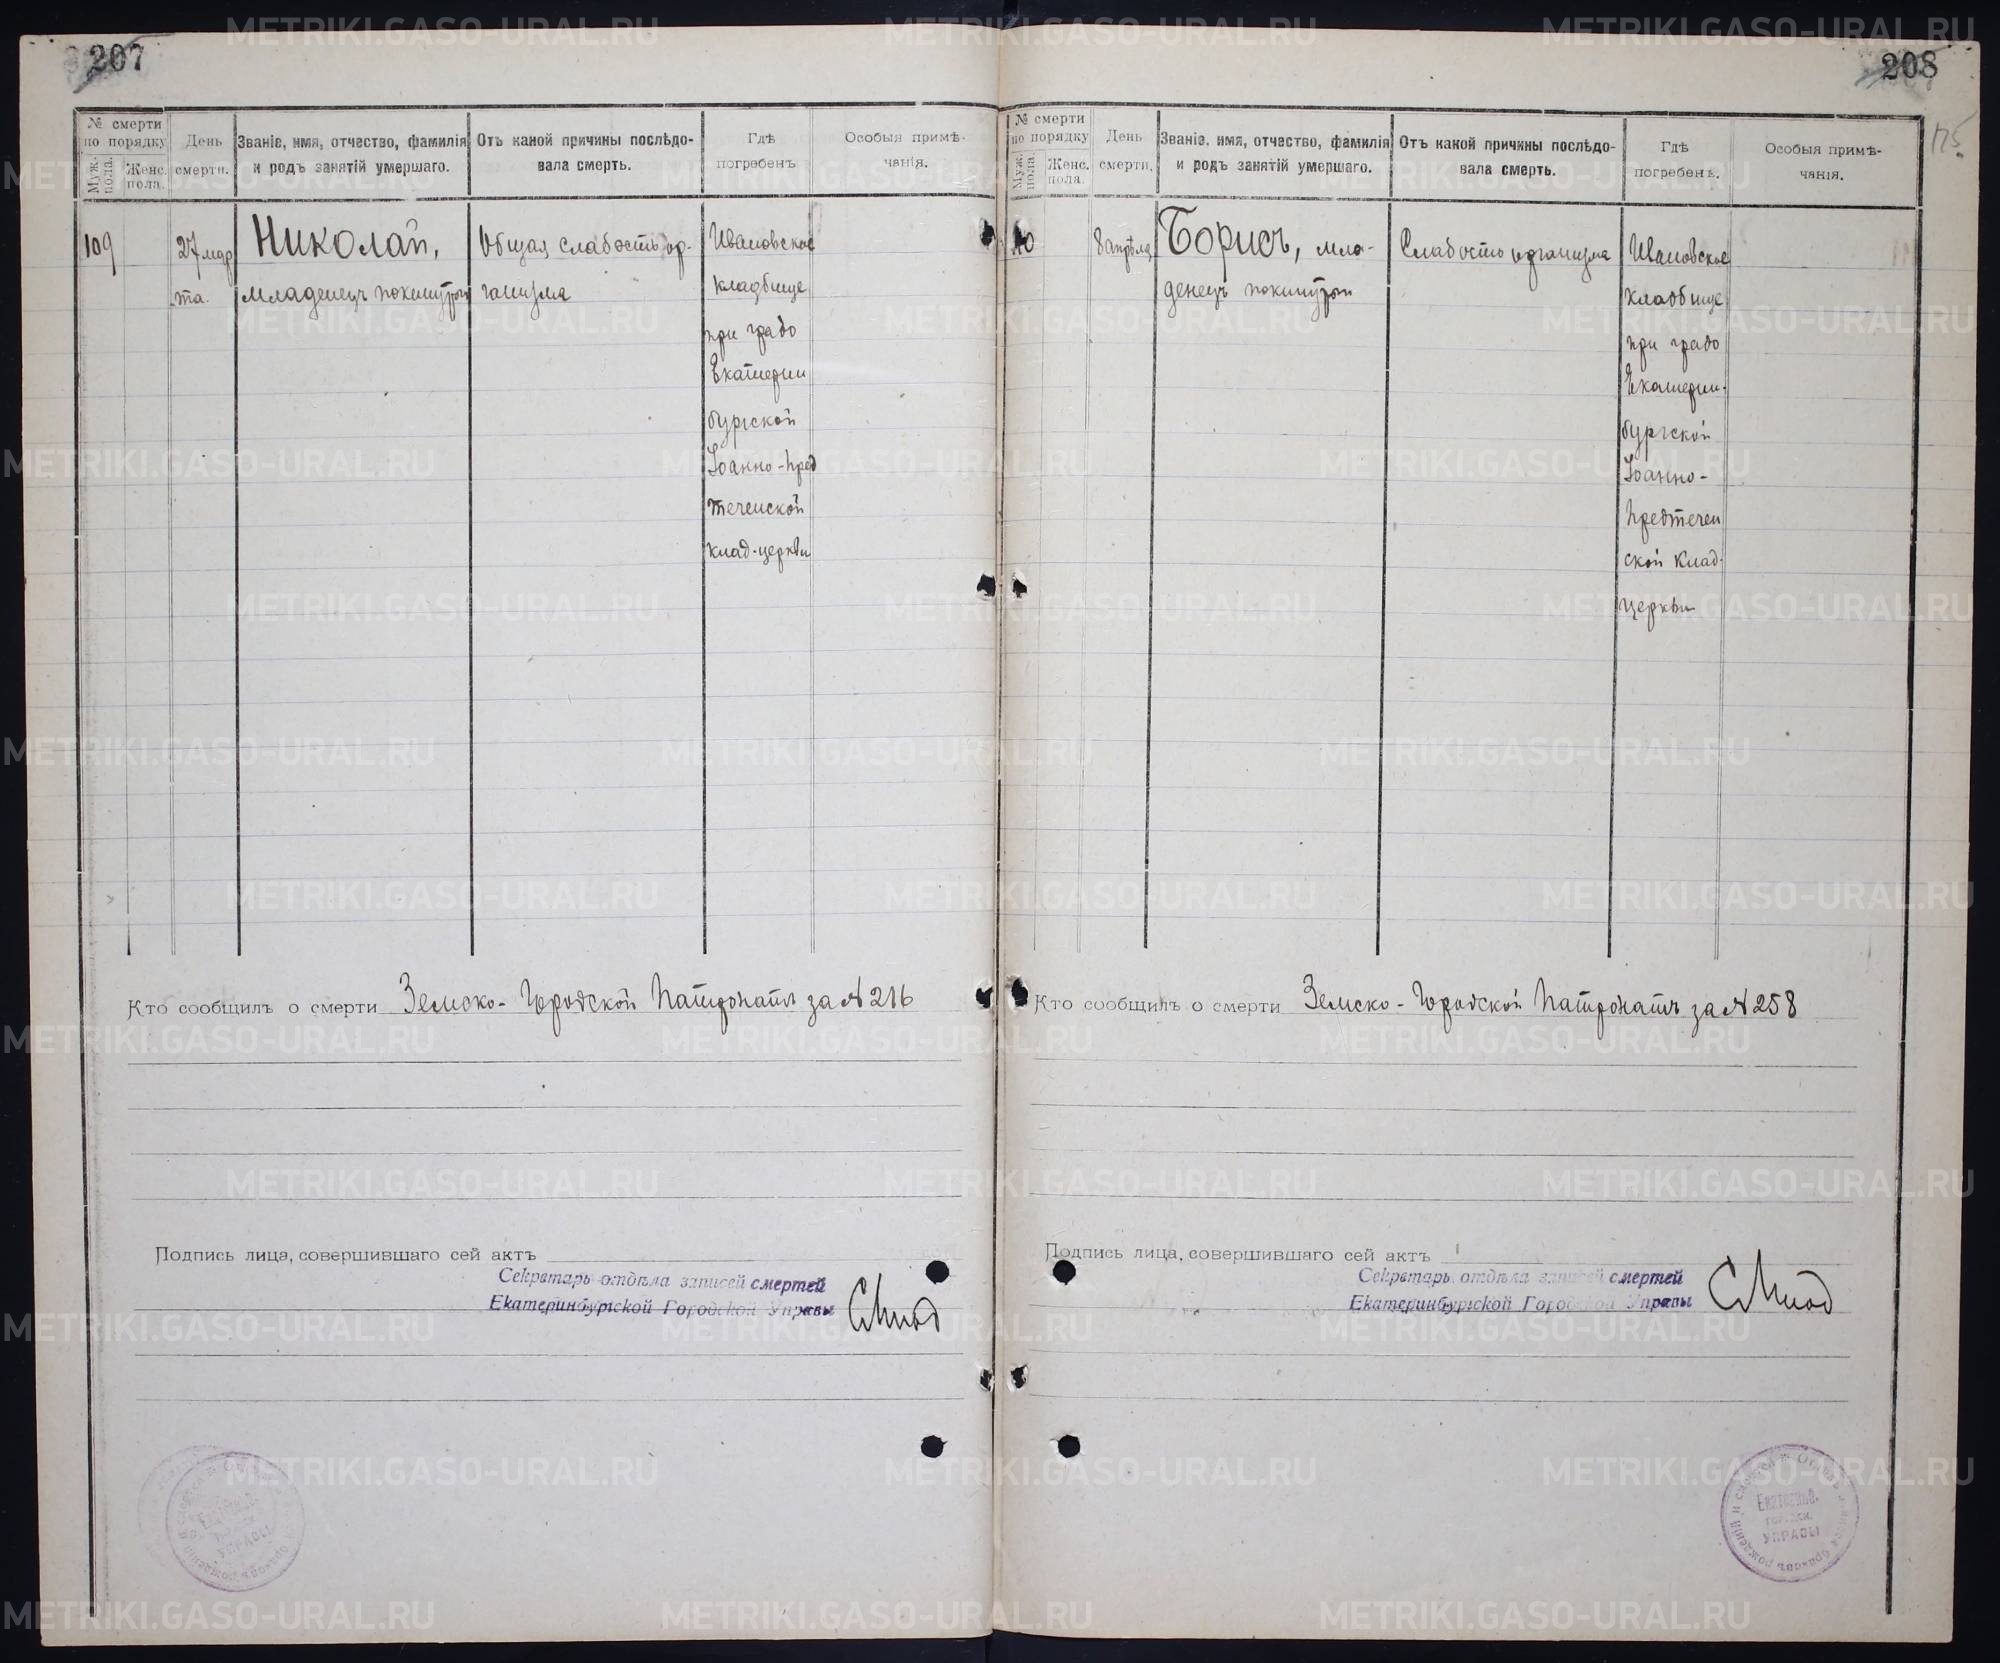 207
№ смерти по порядку
Муж. пола.
Женс. пола.
День смерти.
Званіе, имя, отчество, фамилія
и родъ занятій умершаго.
Отъ какой причины послѣдо-
вала смерть.
Гдѣ
погребенъ
Особыя примѣ-
чанія.
109
27 мар
та.
Николай,
младенецъ покинутый
Общая слабость ор-
ганизма
Ивановское
кладбище
при градо
Екатерин
бургской
Іоанно-Пред
теченской
клад-церкви
Кто сообщилъ о смерти Земско-Городской Патронатъ за № 216
Подпись лица, совершившаго сей актъ
Секретарь отдѣла записей смертей
Екатеринбургской Городской Управы
208
175
№ смерти
по порядку
Муж. пола.
Женс. пола.
День
смерти.
Званіе, имя, отчество, фамилія
и родъ занятій умершаго.
Отъ какой причины послѣдо-
вала смерть.
Гдѣ
погребенъ.
Особыя примѣ-
чанія.
110
8 апрѣля
Борисъ, мла-
денецъ покинутый
Слабость организма
Ивановское
кладбище
при градо
Екатерин-
бургской
Іоанно-
Предтечен
ской Клад-
церкви
Кто сообщилъ о смерти Земско-Городской Патронатъ за № 258
Подпись лица, совершившаго сей актъ
Секретарь отдѣла записей смертей
Екатеринбургской Городской Управы
Екатеринб.
городск.
УПРАВЫ
METRIKI.GASO-URAL.RU